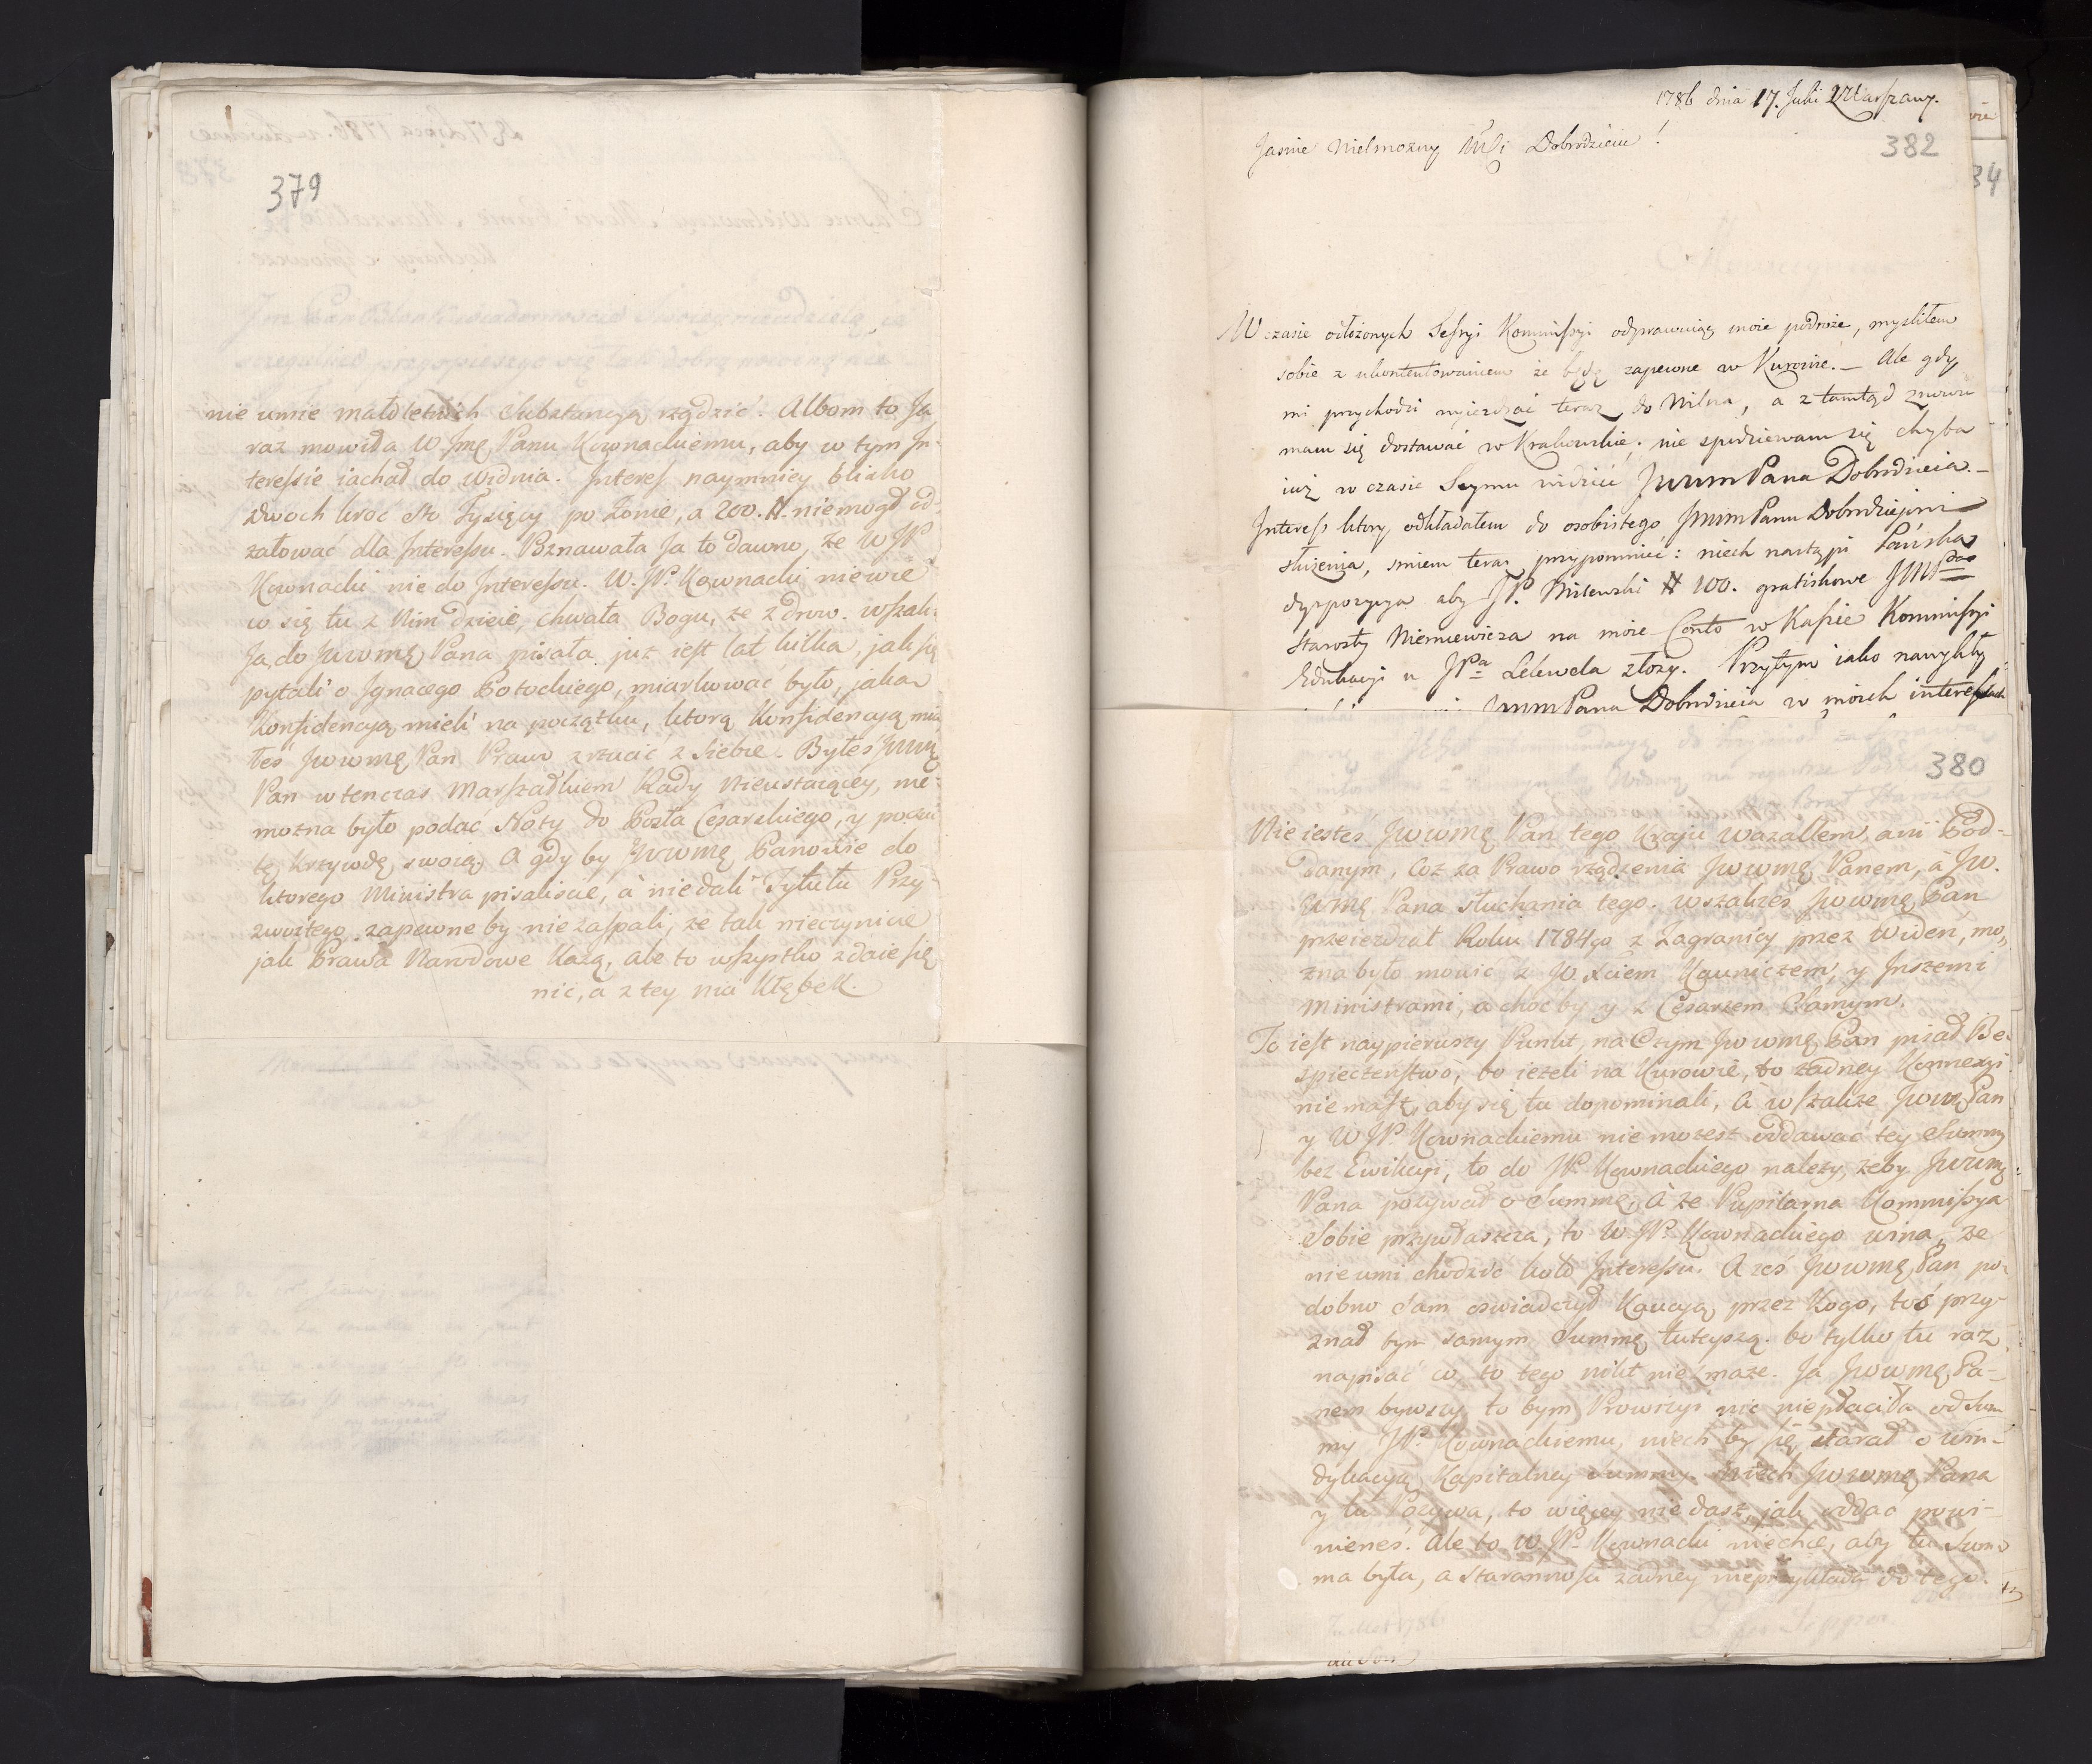 379
nie umie małoletnich Substancyą rządzić. Albom to Ja
raz mowiła W Jmę Panu Kownackiemu, aby w tym In-
teressie iachał do Widnia. Interes naymniey blisko
dwoch kroć sto Tysięcy po Żonie, a 200. # niemogł od-
załować dla Interessu. Poznawała Ja to dawno, że W JP.
Kownacki nie do Interessu. W. JP. Kownacki niewie
co się tu z Nim dzieie, chwała Bogu, że zdrow. wszak
Ja do Jwwmę Pana pisała już iest lat kilka, jak się
pytali o Jgnacego Potockiego, miarkować było, jaka
Konfidencyą mieli na początku, ktorą Konfidencyą mia
łeś Jwwmę Pan Prawo zrzucić z Siebie. Byłeś Jwwmę
Pan wtenczas Marszałkiem Rady Nieustaiącey, nie
można było podać Noty do Posła Cesarskiego, y poczu
tę krzywdę swoię. A gdy by Jwwmę Panowie do
ktorego Ministra pisaliscie, a niedali Tytułu Przy-
zwoitego, zapewne by nie zaspali, że tak nieczynicie
jak Prawa Narodowe Każą, ale to wszystko zdaie się
nic, a z tey nia Kłębek.
1786 dnia 17. Julii z Warszawy.
382
Jasnie Wielmożny Mći Dobrodzieiu!
W czasie odłożonych Sessyi Kommissyi odprawuiąc moie podroże, myśliłem
sobie z ukontentowaniem że będę zapewne w Kurowie. – Ale gdy
mi przychodzi wyieżdzać teraz do Wilna, a z tamtąd znowu
mam się dostawać w Krakowskie; nie spodziewam się chyba
iuż w czasie Seymu widzieć JWWM Pana Dobrodzieia. –
Interess ktory odkładałem do osobistego JWWM Panu Dobrodziejowi
służenia, smiem teraz przypomnieć: niech nastąpi Pańska
dyspozycya aby JP. Milewski # 100. gratisowe JMPana
Starosty Niemcewicza na moie Conto w Kassie Kommissyi
Edukacyi u JPa Lelewela złoży. Przytym iako nawykły
JWWM Pana Dobrodzieia w moich interessach
380
Nie iesteś Jwwmę Pan tego Kraju wazallem, ani Pod-
danym, Coż za Prawo rządzenia Jwwmę Panem, a Jw.
wmę Pana słuchania tego. wszakżeś Jwwmę Pan
przeieżdzał Roku 1784go z Zagranicy przez Widen, mo-
żna było mowić z JO. Xciem Kauniczem, y Jnszemi
Ministrami, a choć by y z Cesarzem Samym.
To iest naypierwszy Punkt, na Czym Jwwmę Pan pisał Be-
spieczeństwo, bo ieżeli na Kurowie, to żadney Konnexyi
niemasz, aby się tu dopominali, A wszakże Jwwmę Pan
y W JP. Kownackiemu nie możesz oddawać tey Summy
bez Ewikcyi, to do JP. Kownackiego należy, żeby Jwwmę
Pana pozywał o Summę, A że Pupilarna Kommissya
Sobie przywłaszcza, to W. JP. Kownackiego wina, że
nie umi chodzić koło Interessu. A żeś Jwwmę Pan po-
dobno Sam oswiadczył Kaucyą przez Kogo, toś przy-
znał tym samym Summę tuteyszą. bo tylko tu raz
napisać co, to tego nikt nie zmaże. Ja Jwwmę Pa-
nem bywszy to bym Prowizyi nic niepłaciła od Sum
my JP. Kownackiemu, niech by się starał o win-
dykacyą Kapitalney Summy. Niech Jwwmę Pana
y tu Pozywa, to więcey niedasz, jak oddać powi-
nieneś. Ale to W. JP. Kownacki niechce, aby tu Sum
ma była, a Starannosci żadney nieprzykłada do tego.